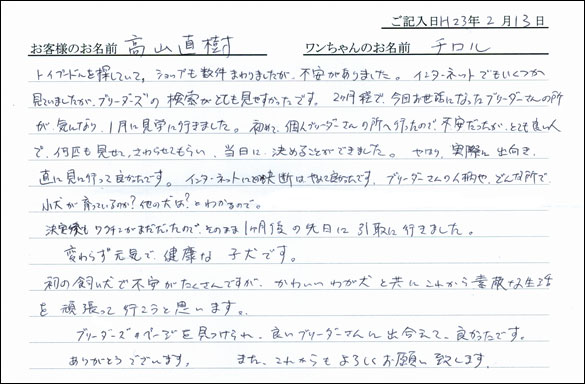 ご記入日H23年2月13日
お客様のお名前 高山直樹 ワンちゃんのお名前 チロル
トイプードルを探していて、ショップも数件まわりましたが、不安がありました。インターネットでもいくつか
見ていましたが、ブリーダーズの検索がとても見やすかったです。2ヶ月程で、今回お世話になったブリーダーさんの所
が気になり、1月に見学に行きました。初めて、個人ブリーダーさんの所へ行ったので、不安だったが、とても良い人
で、何匹も見せて、さわらせてもらい、当日に決めることができました。やはり、実際に出向き、
直に見に行って良かったです。インターネットにての決断はやめて良かったです。ブリーダーさんの人柄や、どんな所で、
小犬が育っているか?他の犬は?とわかるので。
決定後もワクチンがまだだったので、そのまま1ヶ月後の先日に引取に行きました。
変わらず元気で、健康な子犬です。
初の飼い犬で不安がたくさんですが、かわいいわが犬と共にこれから素敵な生活
を頑張って行こうと思います。
ブリーダーズのページを見つけられ、良いブリーダーさんに出会えて、良かったです。
ありがとうございます。また、これからもよろしくお願い致します。